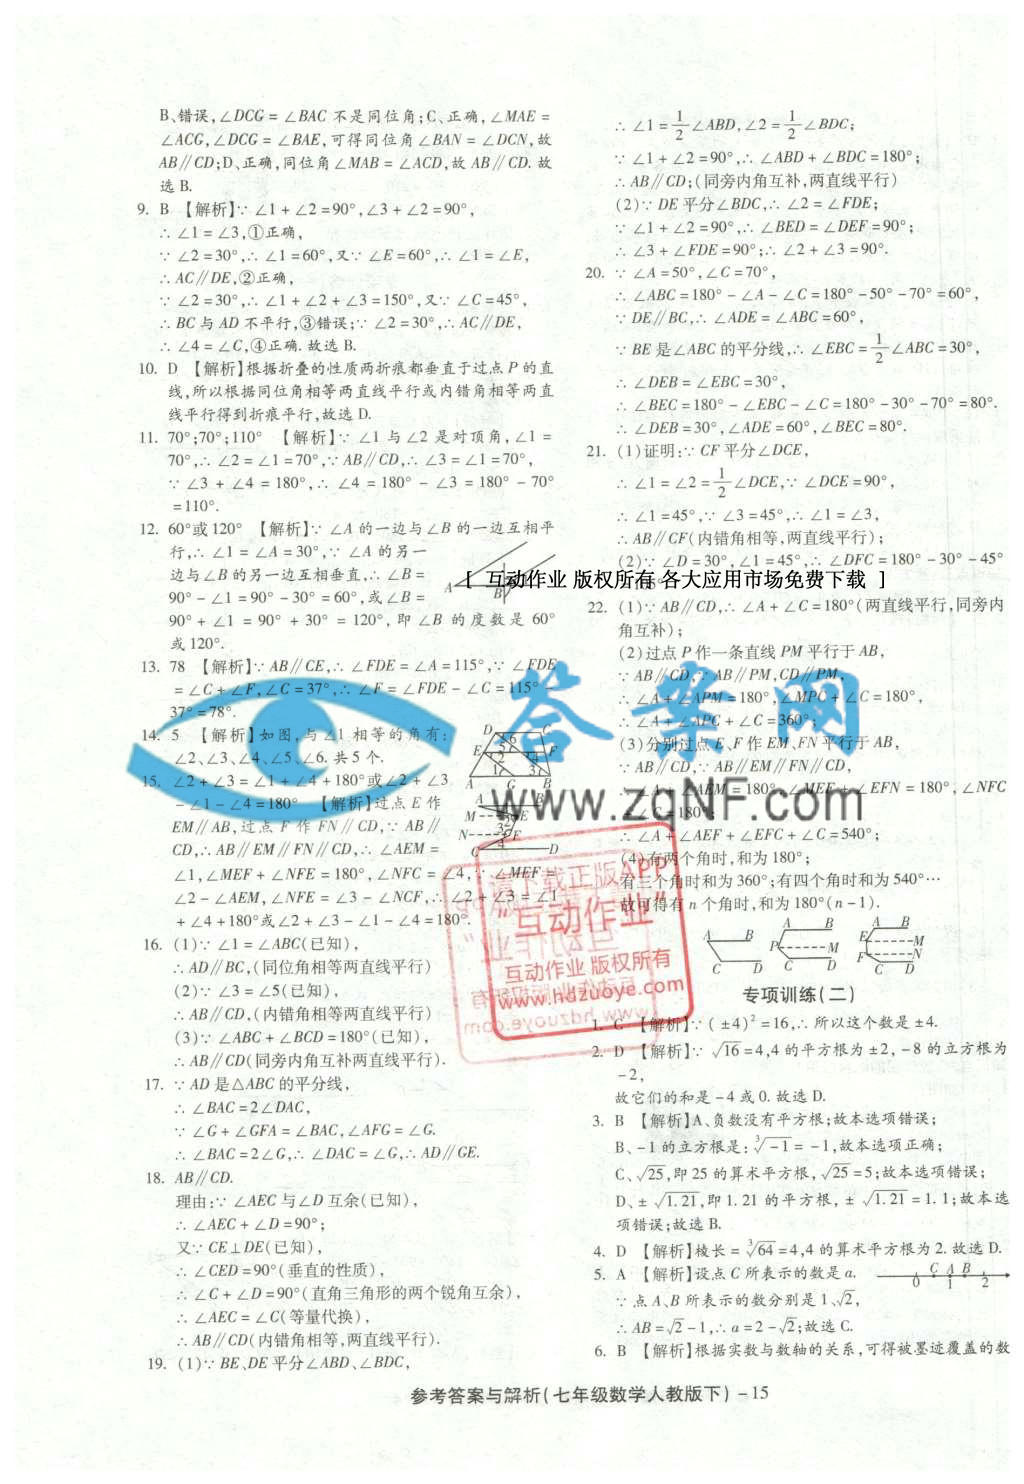 B、错误,∠DCG=∠BAC 不是同位角;C、正确,∠MAE=
∠ACG,∠DCG=∠BAE,可得同位角∠BAN=∠DCN,故
AB∥CD;D、正确,同位角∠MAB=∠ACD,故 AB∥CD. 故
选 B.
9. B 【解析】∵∠1+∠2=90°,∠3+∠2=90°,
∴∠1=∠3,①正确,
∵∠2=30°,∴∠1=60°,又∵∠E=60°,∴∠1=∠E,
∴AC∥DE,②正确,
∵∠2=30°,∴∠1+∠2+∠3=150°,又∵∠C=45°,
∴BC 与 AD 不平行,③错误;∵∠2=30°,∴AC∥DE,
∴∠4=∠C,④正确. 故选 B.
10. D 【解析】根据折叠的性质两折痕都垂直于过点 P 的直
线,所以根据同位角相等两直线平行或内错角相等两直
线平行得到折痕平行,故选 D.
11. 70°;70°;110° 【解析】∵∠1 与∠2 是对顶角,∠1=
70°,∴∠2=∠1=70°,∵AB∥CD,∴∠3=∠1=70°,
∵∠3+∠4=180°,∴∠4=180°-∠3=180°-70°
=110°.
12. 60°或 120° 【解析】∵∠A 的一边与∠B 的一边互相平
行,∴∠1=∠A=30°,∵∠A 的另一
边与∠B 的另一边互相垂直,∴∠B=
90°-∠1=90°-30°=60°,或∠B=
90°+∠1=90°+30°=120°,即∠B 的度数是 60°
或 120°.
13. 78 【解析】∵AB∥CE,∴∠FDE=∠A=115°,∵∠FDE
=∠C+∠F,∠C=37°,∴∠F=∠FDE-∠C=115°-
37°=78°.
14. 5 【解析】如图,与∠1 相等的角有:
∠2、∠3、∠4、∠5、∠6. 共 5 个.
15. ∠2+∠3=∠1+∠4+180°或∠2+∠3
-∠1-∠4=180° 【解析】过点 E 作
EM∥AB,过点 F 作 FN∥CD,∵AB∥
CD,∴AB∥EM∥FN∥CD,∴∠AEM=
∠1,∠MEF+∠NFE=180°,∠NFC=∠4,∵∠MEF=
∠2-∠AEM,∠NFE=∠3-∠NCF,∴∠2+∠3=∠1
+∠4+180°或∠2+∠3-∠1-∠4=180°.
16. (1)∵∠1=∠ABC(已知),
∴AD∥BC,(同位角相等两直线平行)
(2)∵∠3=∠5(已知),
∴AB∥CD,(内错角相等两直线平行)
(3)∵∠ABC+∠BCD=180°(已知),
∴AB∥CD(同旁内角互补两直线平行).
17. ∵AD 是△ABC 的平分线,
∴∠BAC=2∠DAC,
∵∠G+∠GFA=∠BAC,∠AFG=∠G.
∴∠BAC=2∠G,∴∠DAC=∠G,∴AD∥GE.
18. AB∥CD.
理由:∵∠AEC 与∠D 互余(已知),
∴∠AEC+∠D=90°;
又∵CE⊥DE(已知),
∴∠CED=90°(垂直的性质),
∴∠C+∠D=90°(直角三角形的两个锐角互余),
∴∠AEC=∠C(等量代换),
∴AB∥CD(内错角相等,两直线平行).
19. (1)∵BE、DE 平分∠ABD、∠BDC,
∴∠1=1/2∠ABD,∠2=1/2∠BDC;
∵∠1+∠2=90°,∴∠ABD+∠BDC=180°;
∴AB∥CD;(同旁内角互补,两直线平行)
(2)∵DE 平分∠BDC,∴∠2=∠FDE;
∵∠1+∠2=90°,∴∠BED=∠DEF=90°;
∴∠3+∠FDE=90°;∴∠2+∠3=90°.
20. ∵∠A=50°,∠C=70°,
∴∠ABC=180°-∠A-∠C=180°-50°-70°=60°,
∵DE∥BC,∴∠ADE=∠ABC=60°,
∵BE 是∠ABC 的平分线,∴∠EBC=1/2∠ABC=30°,
∴∠DEB=∠EBC=30°,
∴∠BEC=180°-∠EBC-∠C=180°-30°-70°=80°.
∴∠DEB=30°,∠ADE=60°,∠BEC=80°.
21. (1)证明:∵CF 平分∠DCE,
∴∠1=∠2=1/2∠DCE,∵∠DCE=90°,
∴∠1=45°,∵∠3=45°,∴∠1=∠3,
∴AB∥CF(内错角相等,两直线平行);
(2)∵∠D=30°,∠1=45°,∴∠DFC=180°-30°-45°
[ 互动作业 版权所有 各大应用市场免费下载 ]
22. (1)∵AB∥CD,∴∠A+∠C=180°(两直线平行,同旁内
角互补);
(2)过点 P 作一条直线 PM 平行于 AB,
∵AB∥CD,∵AB∥PM,CD∥PM,
∴∠A+∠APM=180°,∠MPC+∠C=180°,
∴∠A+∠APC+∠C=360°;
(3)分别过点 E、F 作 EM、FN 平行于 AB,
∵AB∥CD,∵AB∥EM∥FN∥CD,
∴∠A+∠AEM=180°,∠MEF+∠EFN=180°,∠NFC
+∠C=180°
∴∠A+∠AEF+∠EFC+∠C=540°;
(4)有两个角时,和为 180°;
有三个角时和为 360°;有四个角时和为 540°…
故可得有 n 个角时,和为 180°(n-1).
专项训练(二)
1. C 【解析】∵(±4)²=16,∴所以这个数是±4.
2. D 【解析】∵√16=4,4 的平方根为±2,-8 的立方根为
-2,
故它们的和是-4 或 0. 故选 D.
3. B 【解析】A、负数没有平方根;故本选项错误;
B、-1 的立方根是:³√-1=-1,故本选项正确;
C、√25,即 25 的算术平方根,√25=5;故本选项错误;
D、±√1.21,即 1.21 的平方根,±√1.21=1.1;故本选
项错误;故选 B.
4. D 【解析】棱长=³√64=4,4 的算术平方根为 2. 故选 D.
5. A 【解析】设点 C 所表示的数是 a.
0 C A 1 B 2
∵点 A、B 所表示的数分别是 1、√2,
∴AB=√2-1,∴a=2-√2;故选 C.
6. B 【解析】根据实数与数轴的关系,可得被墨迹覆盖的数
参考答案与解析(七年级数学人教版下)-15
答案网
www.zqNF.com
请下载正版APP
"互动作业"
互动作业 版权所有
www.hdzuoye.com